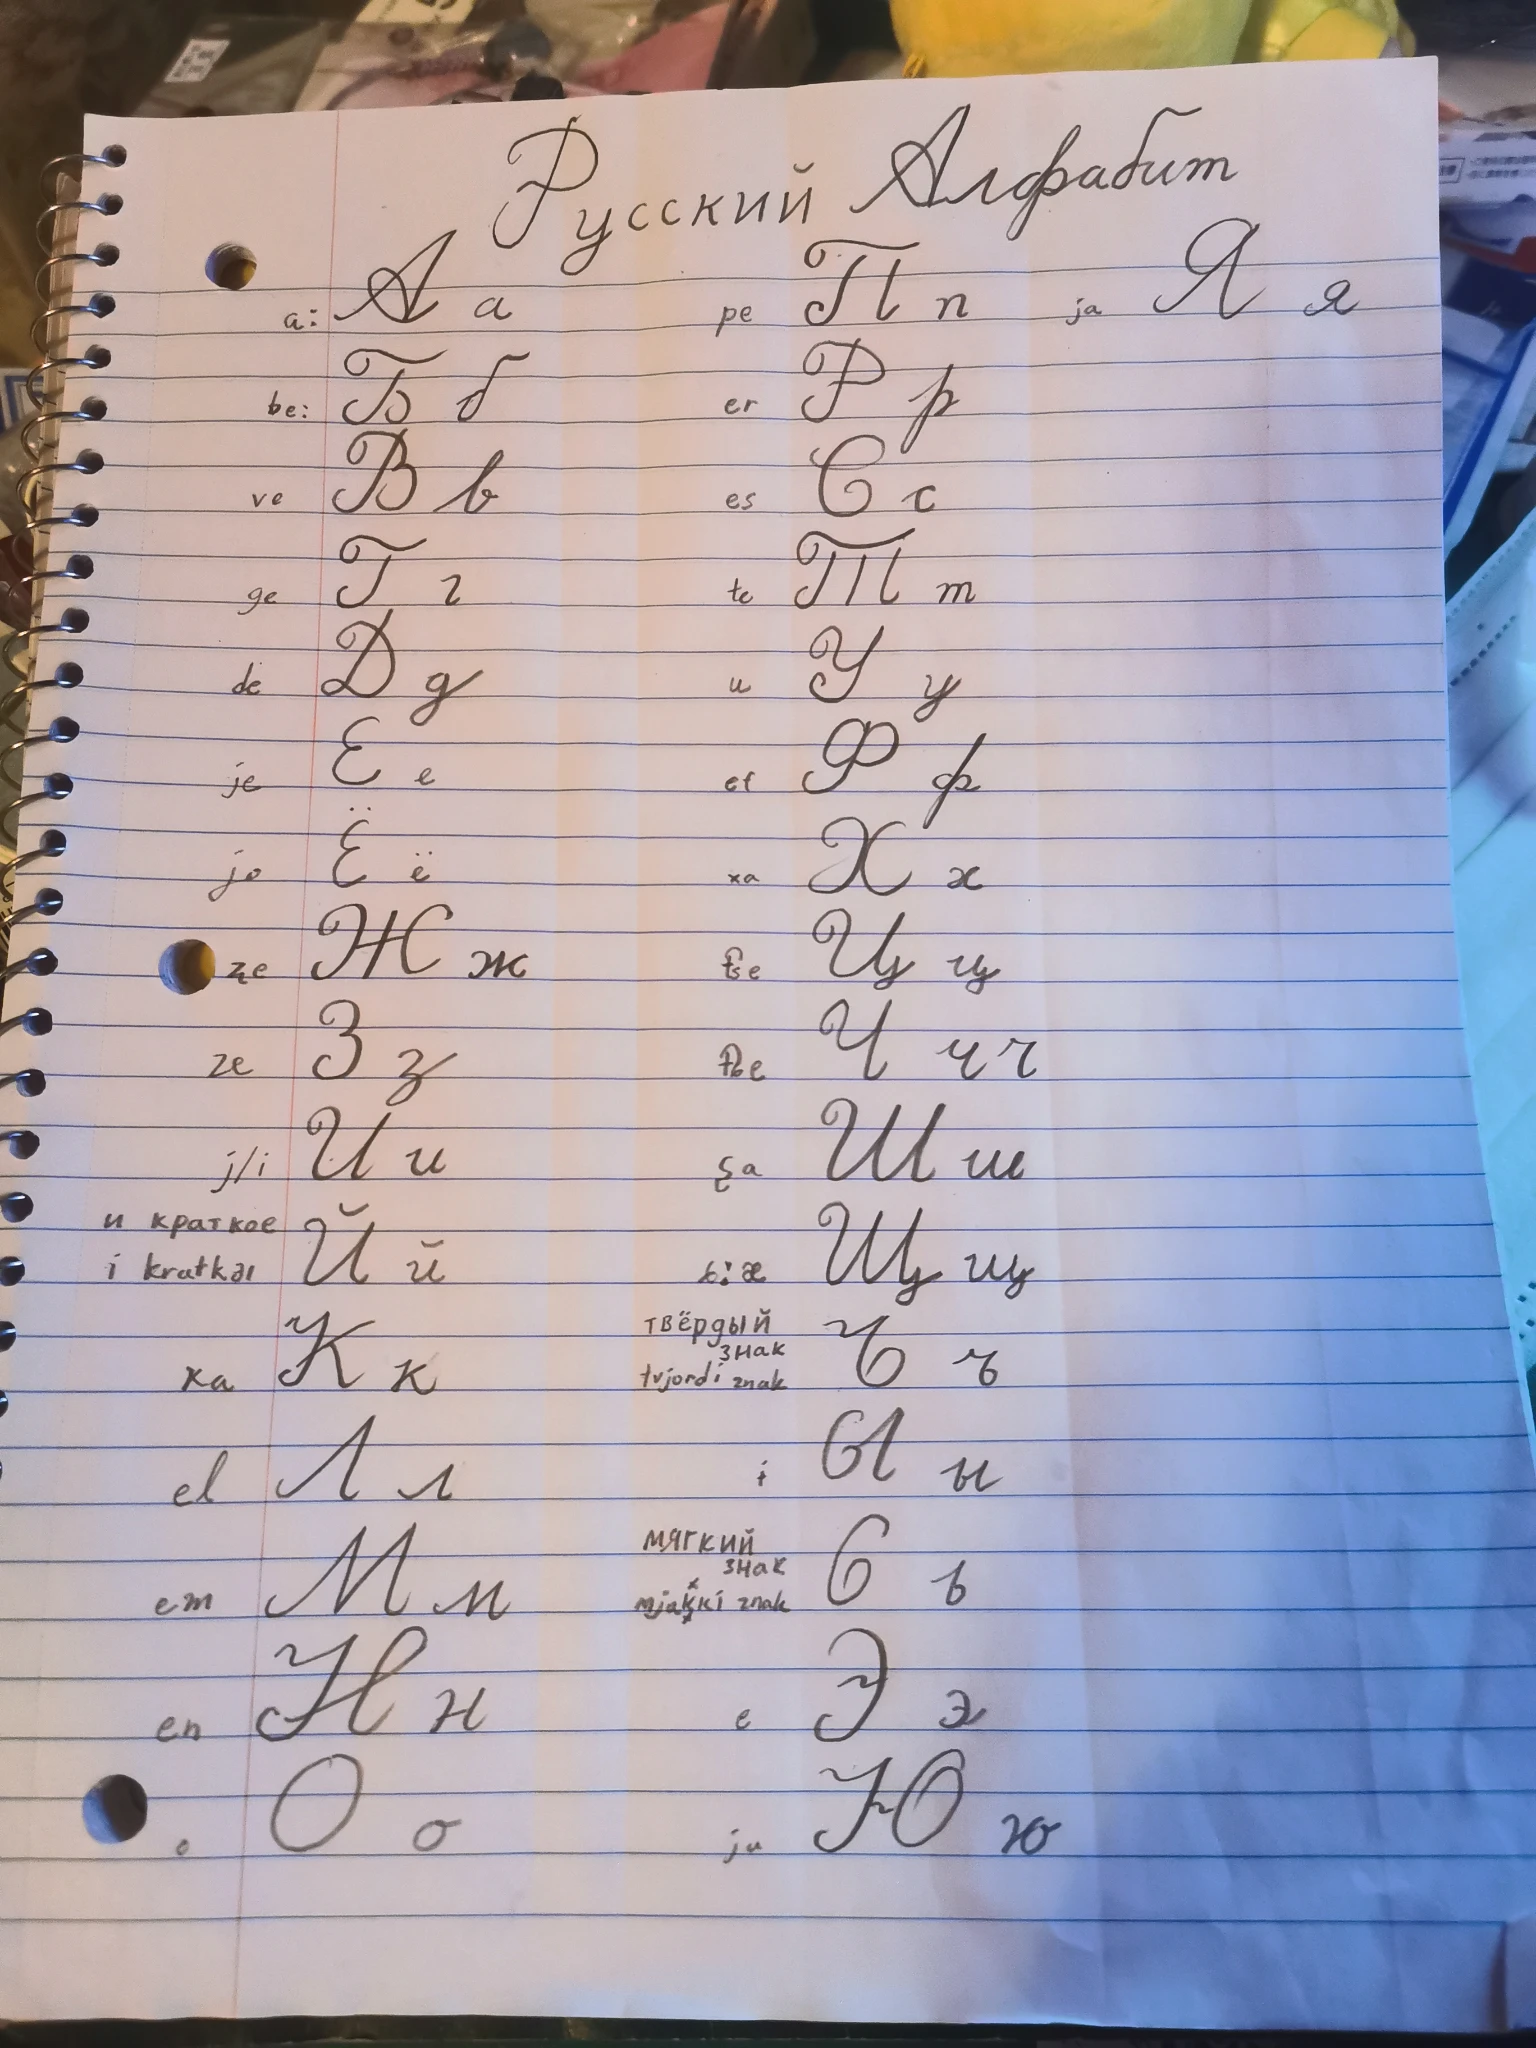 Русский Алфабит
a: А а pe П п ja Я я
be: Б б er Р р
ve В в es С с
ge Г г te Т т
de Д д u У у
je Е е ef Ф ф
jo Ё ё xa Х х
ʐe Ж ж t͡se Ц ц
ze З з t͡ɕe Ч ч ч
j/i И и ʂa Ш ш
и краткое
i kratkəɪ Й й ɕ:æ Щ щ
твёрдый
знак
ka К к tvjordi znak Ъ ъ
el Л л ɨ Ы ы
мягкий
знак
em М м znak Ь ь
en Н н e Э э
o О о ju Ю ю